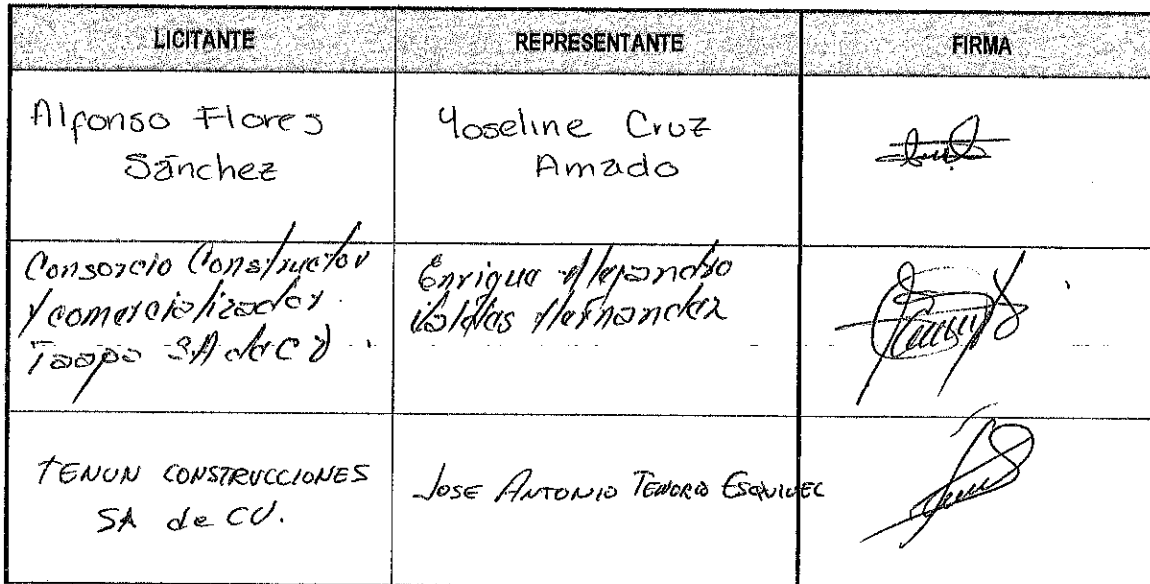 LICITANTE REPRESENTANTE FIRMA
Alfonso Flores
Sánchez
Yoseline Cruz
Amado
Consorcio Constructor
y comercializador
Taopo SA de CV.
Enrique Alejandro
Hernandez
TENUN CONSTRUCCIONES
SA de CV.
JOSE ANTONIO TENORIO ESQUIVEL